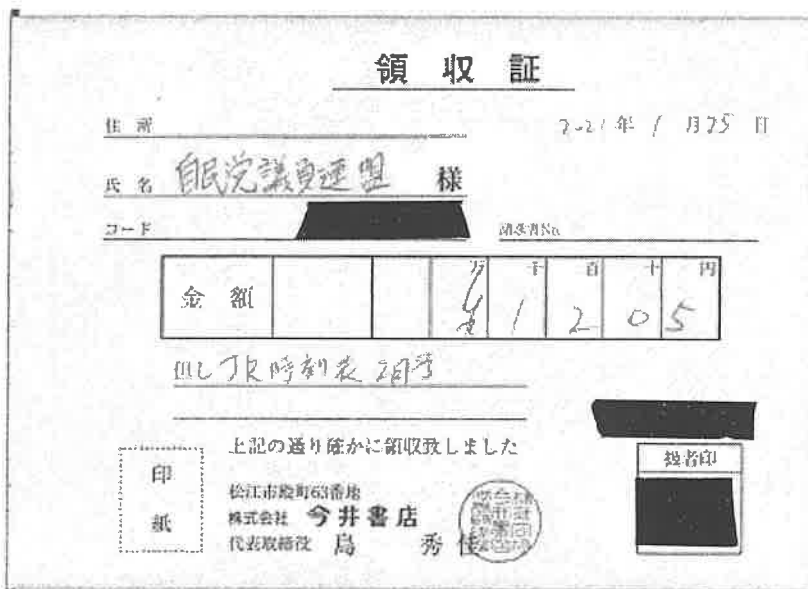 領収証
住所
2021年 1月25日
氏名 自民党議員連盟 様
コード
請求書No.
万 千 百 十 円
金額 ¥ 1 2 0 5
但し JR時刻表 2月号
上記の通り確かに領収致しました
扱者印
印紙
松江市殿町63番地
株式会社 今井書店
代表取締役 島 秀佳